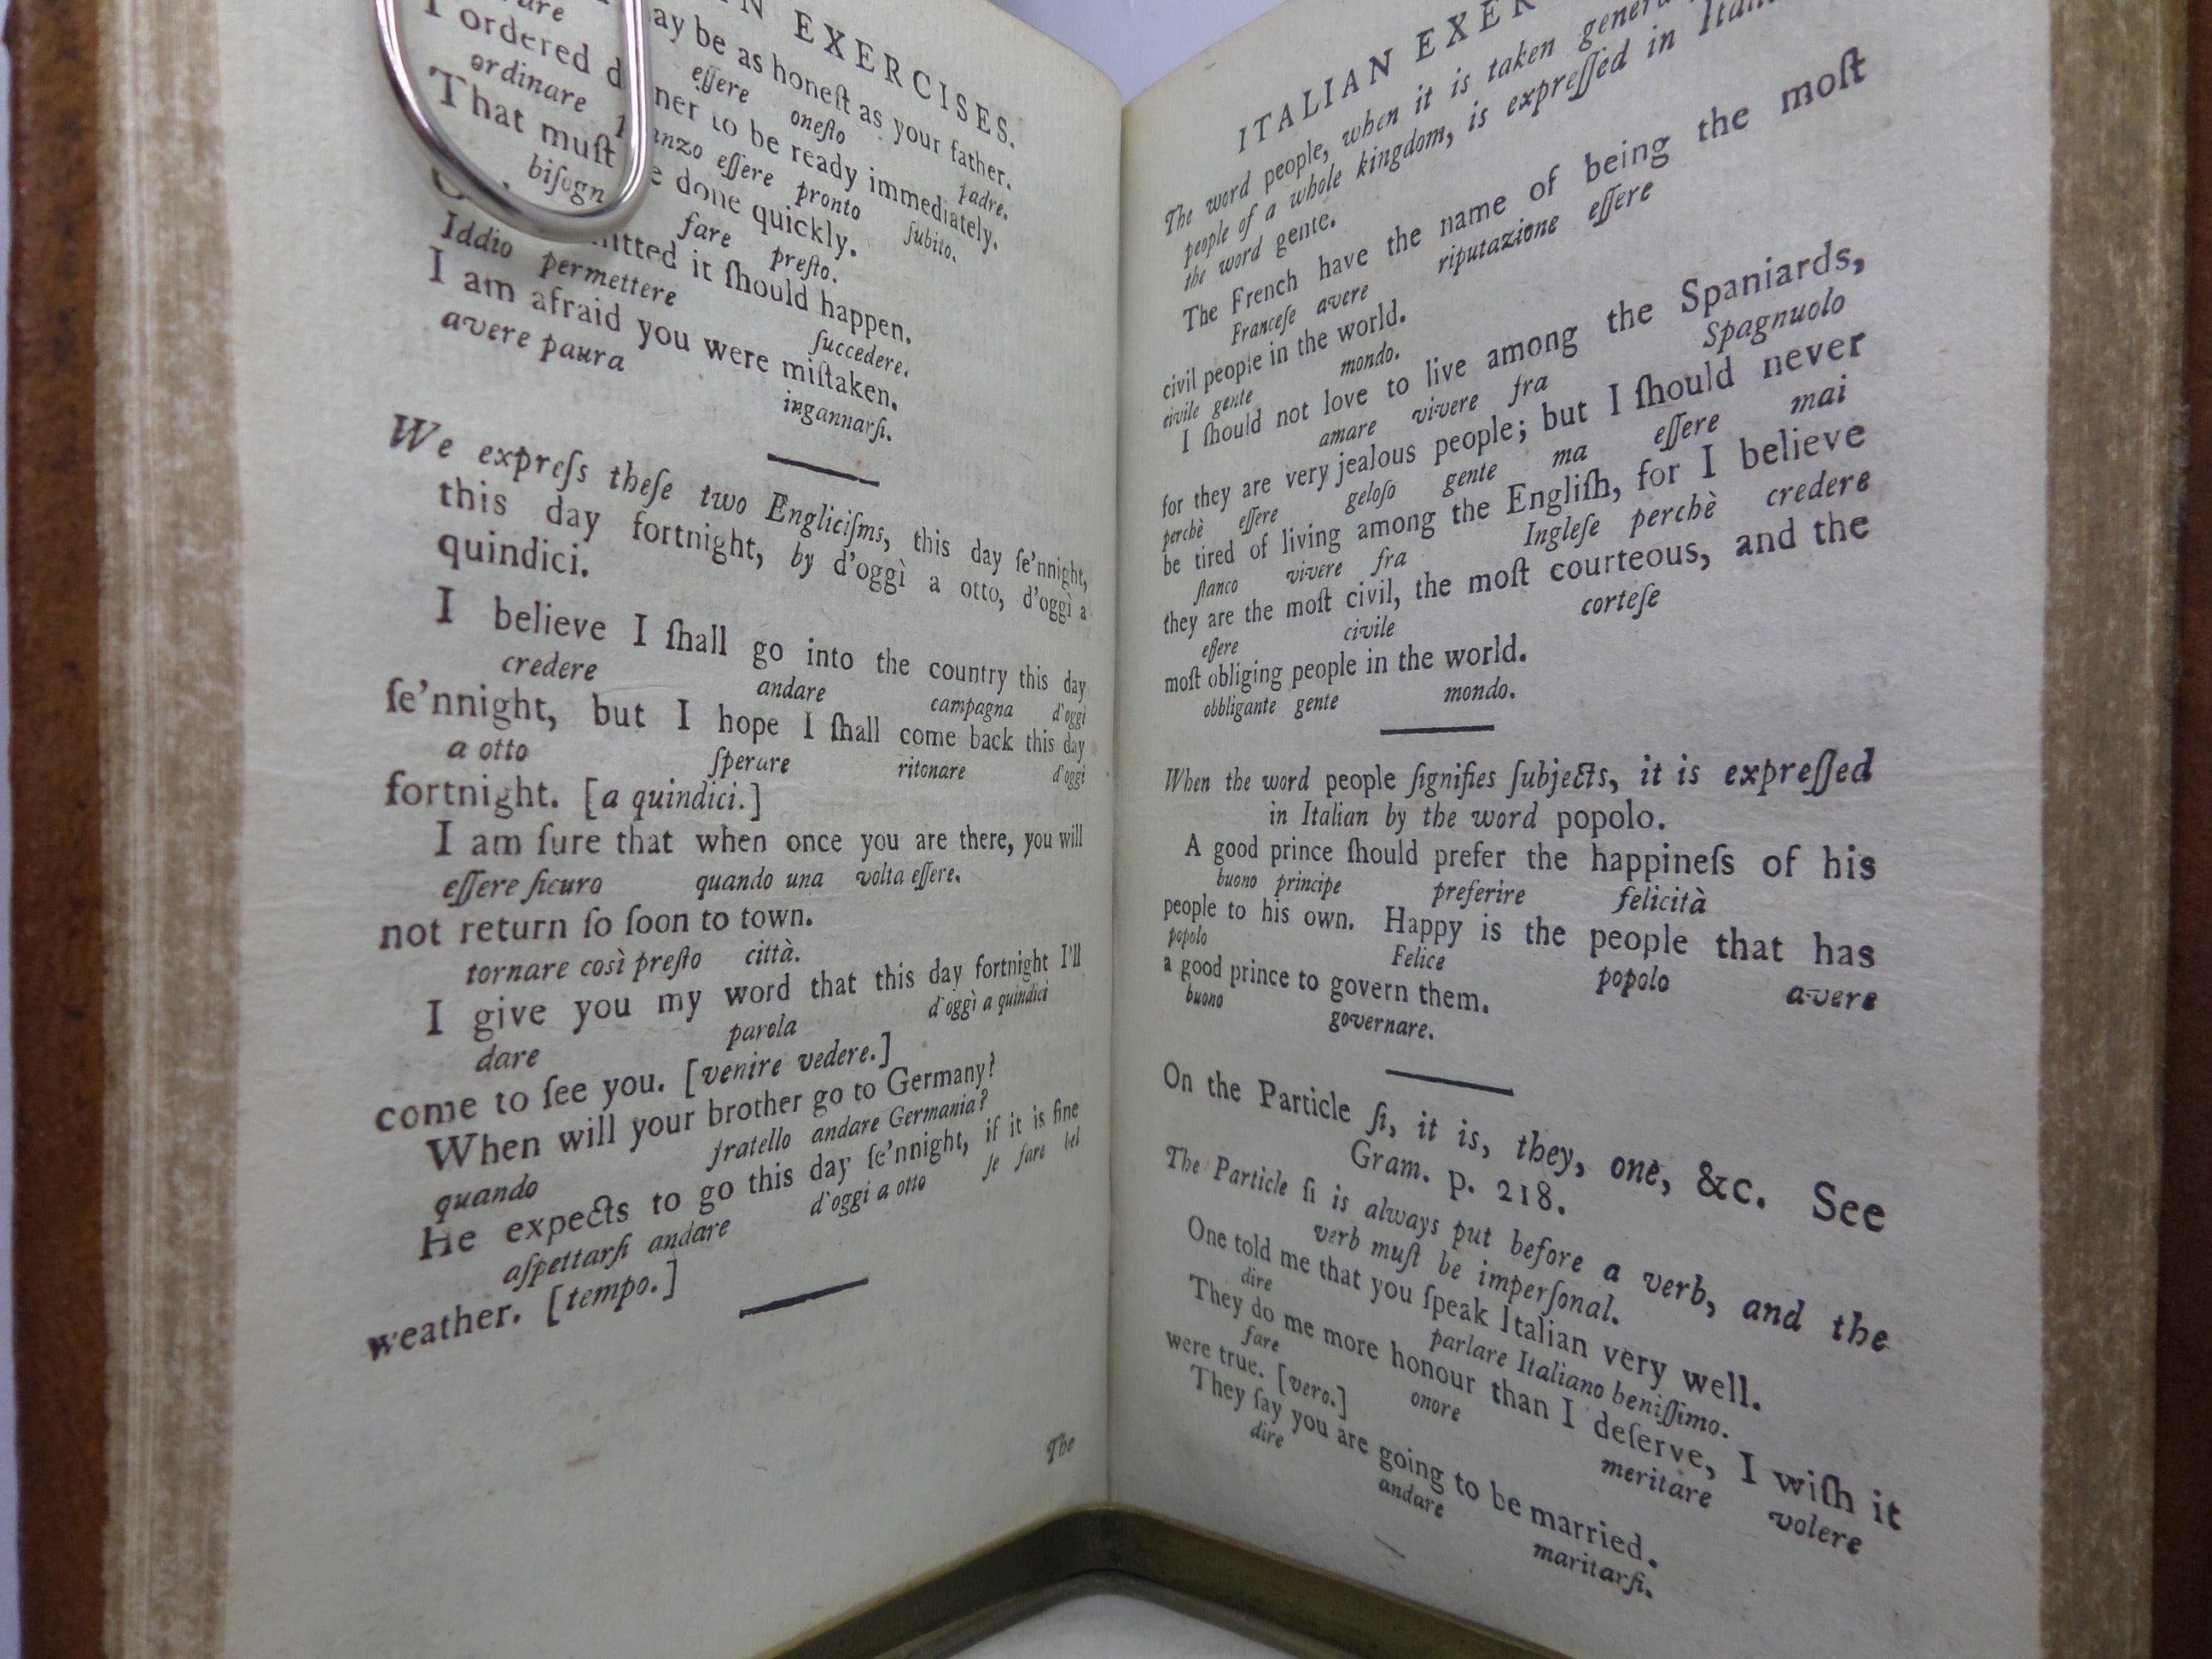 N EXERCISES.
ay be as honeſt as your father.
eſſere oneſto padre.
I ordered d ner to be ready immediately.
ordinare anzo eſſere pronto ſubito.
That muſt e done quickly.
biſogn fare preſto.
itted it ſhould happen.
Iddio permettere ſuccedere.
I am afraid you were miſtaken.
avere paura ingannarſi.
We expreſs theſe two Engliciſms, this day ſe'nnight,
this day fortnight, by d'oggì a otto, d'oggì a
quindici.
I believe I ſhall go into the country this day
credere andare campagna d'oggi
ſe'nnight, but I hope I ſhall come back this day
a otto ſperare ritonare d'oggi
fortnight. [a quindici.]
I am ſure that when once you are there, you will
eſſere ſicuro quando una volta eſſere.
not return ſo ſoon to town.
tornare così preſto città.
I give you my word that this day fortnight I'll
dare parola d'oggì a quindici
come to ſee you. [venire vedere.]
When will your brother go to Germany?
quando fratello andare Germania?
He expects to go this day ſe'nnight, if it is fine
aſpettarſi andare d'oggi a otto ſe fare bel
weather. [tempo.]
The
ITALIAN EXER
The word people, when it is taken genera
people of a whole kingdom, is expreſſed in Itali
the word gente.
The French have the name of being the moſt
Franceſe avere riputazione eſſere
civil people in the world.
civile gente mondo.
I ſhould not love to live among the Spaniards,
amare vivere fra Spagnuolo
for they are very jealous people; but I ſhould never
perchè eſſere geloſo gente ma eſſere mai
be tired of living among the Engliſh, for I believe
ſtanco vivere fra Ingleſe perchè credere
they are the moſt civil, the moſt courteous, and the
eſſere civile corteſe
moſt obliging people in the world.
obbligante gente mondo.
When the word people ſignifies ſubjects, it is expreſſed
in Italian by the word popolo.
A good prince ſhould prefer the happineſs of his
buono principe preferire felicità
people to his own. Happy is the people that has
popolo Felice popolo avere
a good prince to govern them.
buono governare.
On the Particle ſi, it is, they, one, &c. See
Gram. p. 218.
The Particle ſi is always put before a verb, and the
verb muſt be imperſonal.
One told me that you ſpeak Italian very well.
dire parlare Italiano beniſſimo.
They do me more honour than I deſerve, I wiſh it
fare onore meritare volere
were true. [vero.]
They ſay you are going to be married.
dire andare maritarſi.